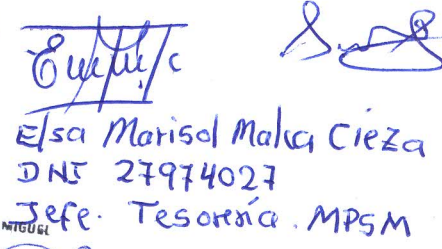 Elsa Marisol Malca Cieza
DNI 27974027
Jefe. Tesorería. MPSM
MIGUEL